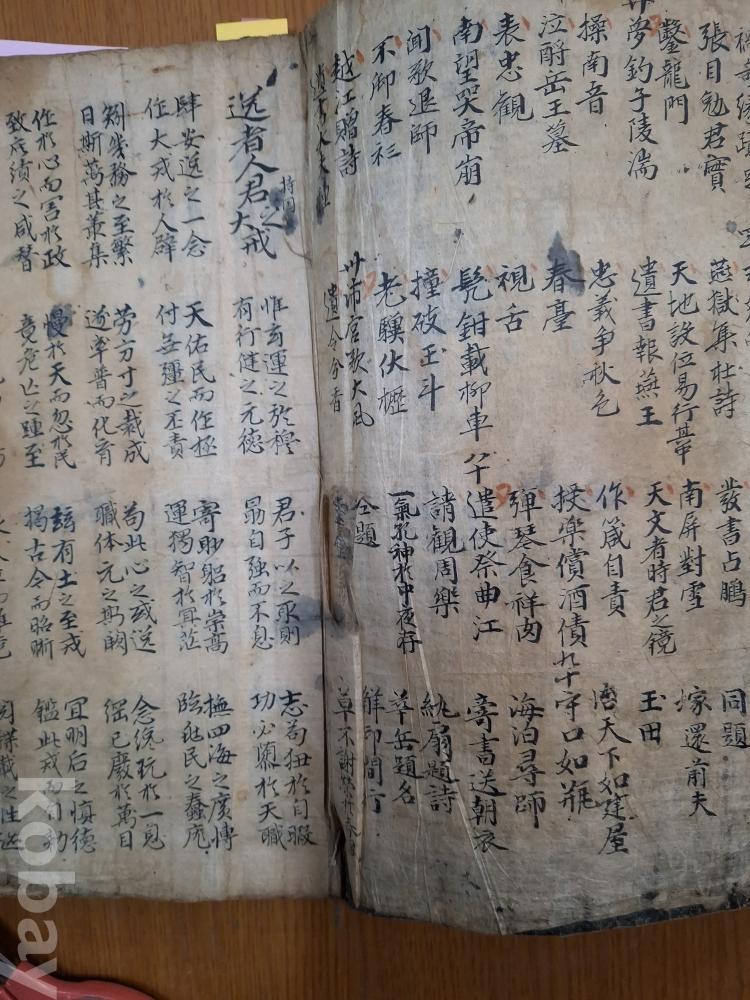 張目勉君實
鑿龍門
夢釣子陵灘
操南音
泣酹岳王墓
表忠觀
南望哭帝崩
聞歌退師
不卸春衫
越江贈詩
燕獄集杜詩
天地設位易行其中
遺書報燕王
忠義爭秋色
春臺
視舌
髡鉗載柳車
撞破玉斗
老驥伏櫪
沛宮歌大風
遺令分香
發書占鵩
南屏對雪
天文者時君之鏡
作箴自責
授樂償酒債
彈琴食祥肉
遣使祭曲江
請觀周樂
一氣孔神於中夜存
仝題
同題
嫁還前夫
玉田
天下如建屋
守口如甁
海泊尋師
寄書送朝衣
紈扇題詩
華岳題名
解印間行
草不謝榮於春
逸者人君之大戒
惟玄運之於穆
有行健之元德
君子以之取則
勗自强而不息
志苟狃於自暇
功必隳於天職
肆安逸之一念
作大戒於人辟
天佑民而作極
付無疆之丕責
寄眇躬於崇高
運獨智於冥茫
撫四海之廣博
臨兆民之蠢庬
矧幾務之至繁
日斯萬其叢集
勞方寸之裁成
遂率普而化育
苟此心之或逸
職體元之爲
念纔玩於一息
綱已廢於萬目
作於心而害於政
致庶績之咸督
慢於天而忽於民
竟危亡之踵至
玆有土之至戒
揭古今而昭晣
宜明后之愼德
鑑此戒而自勅
kobay